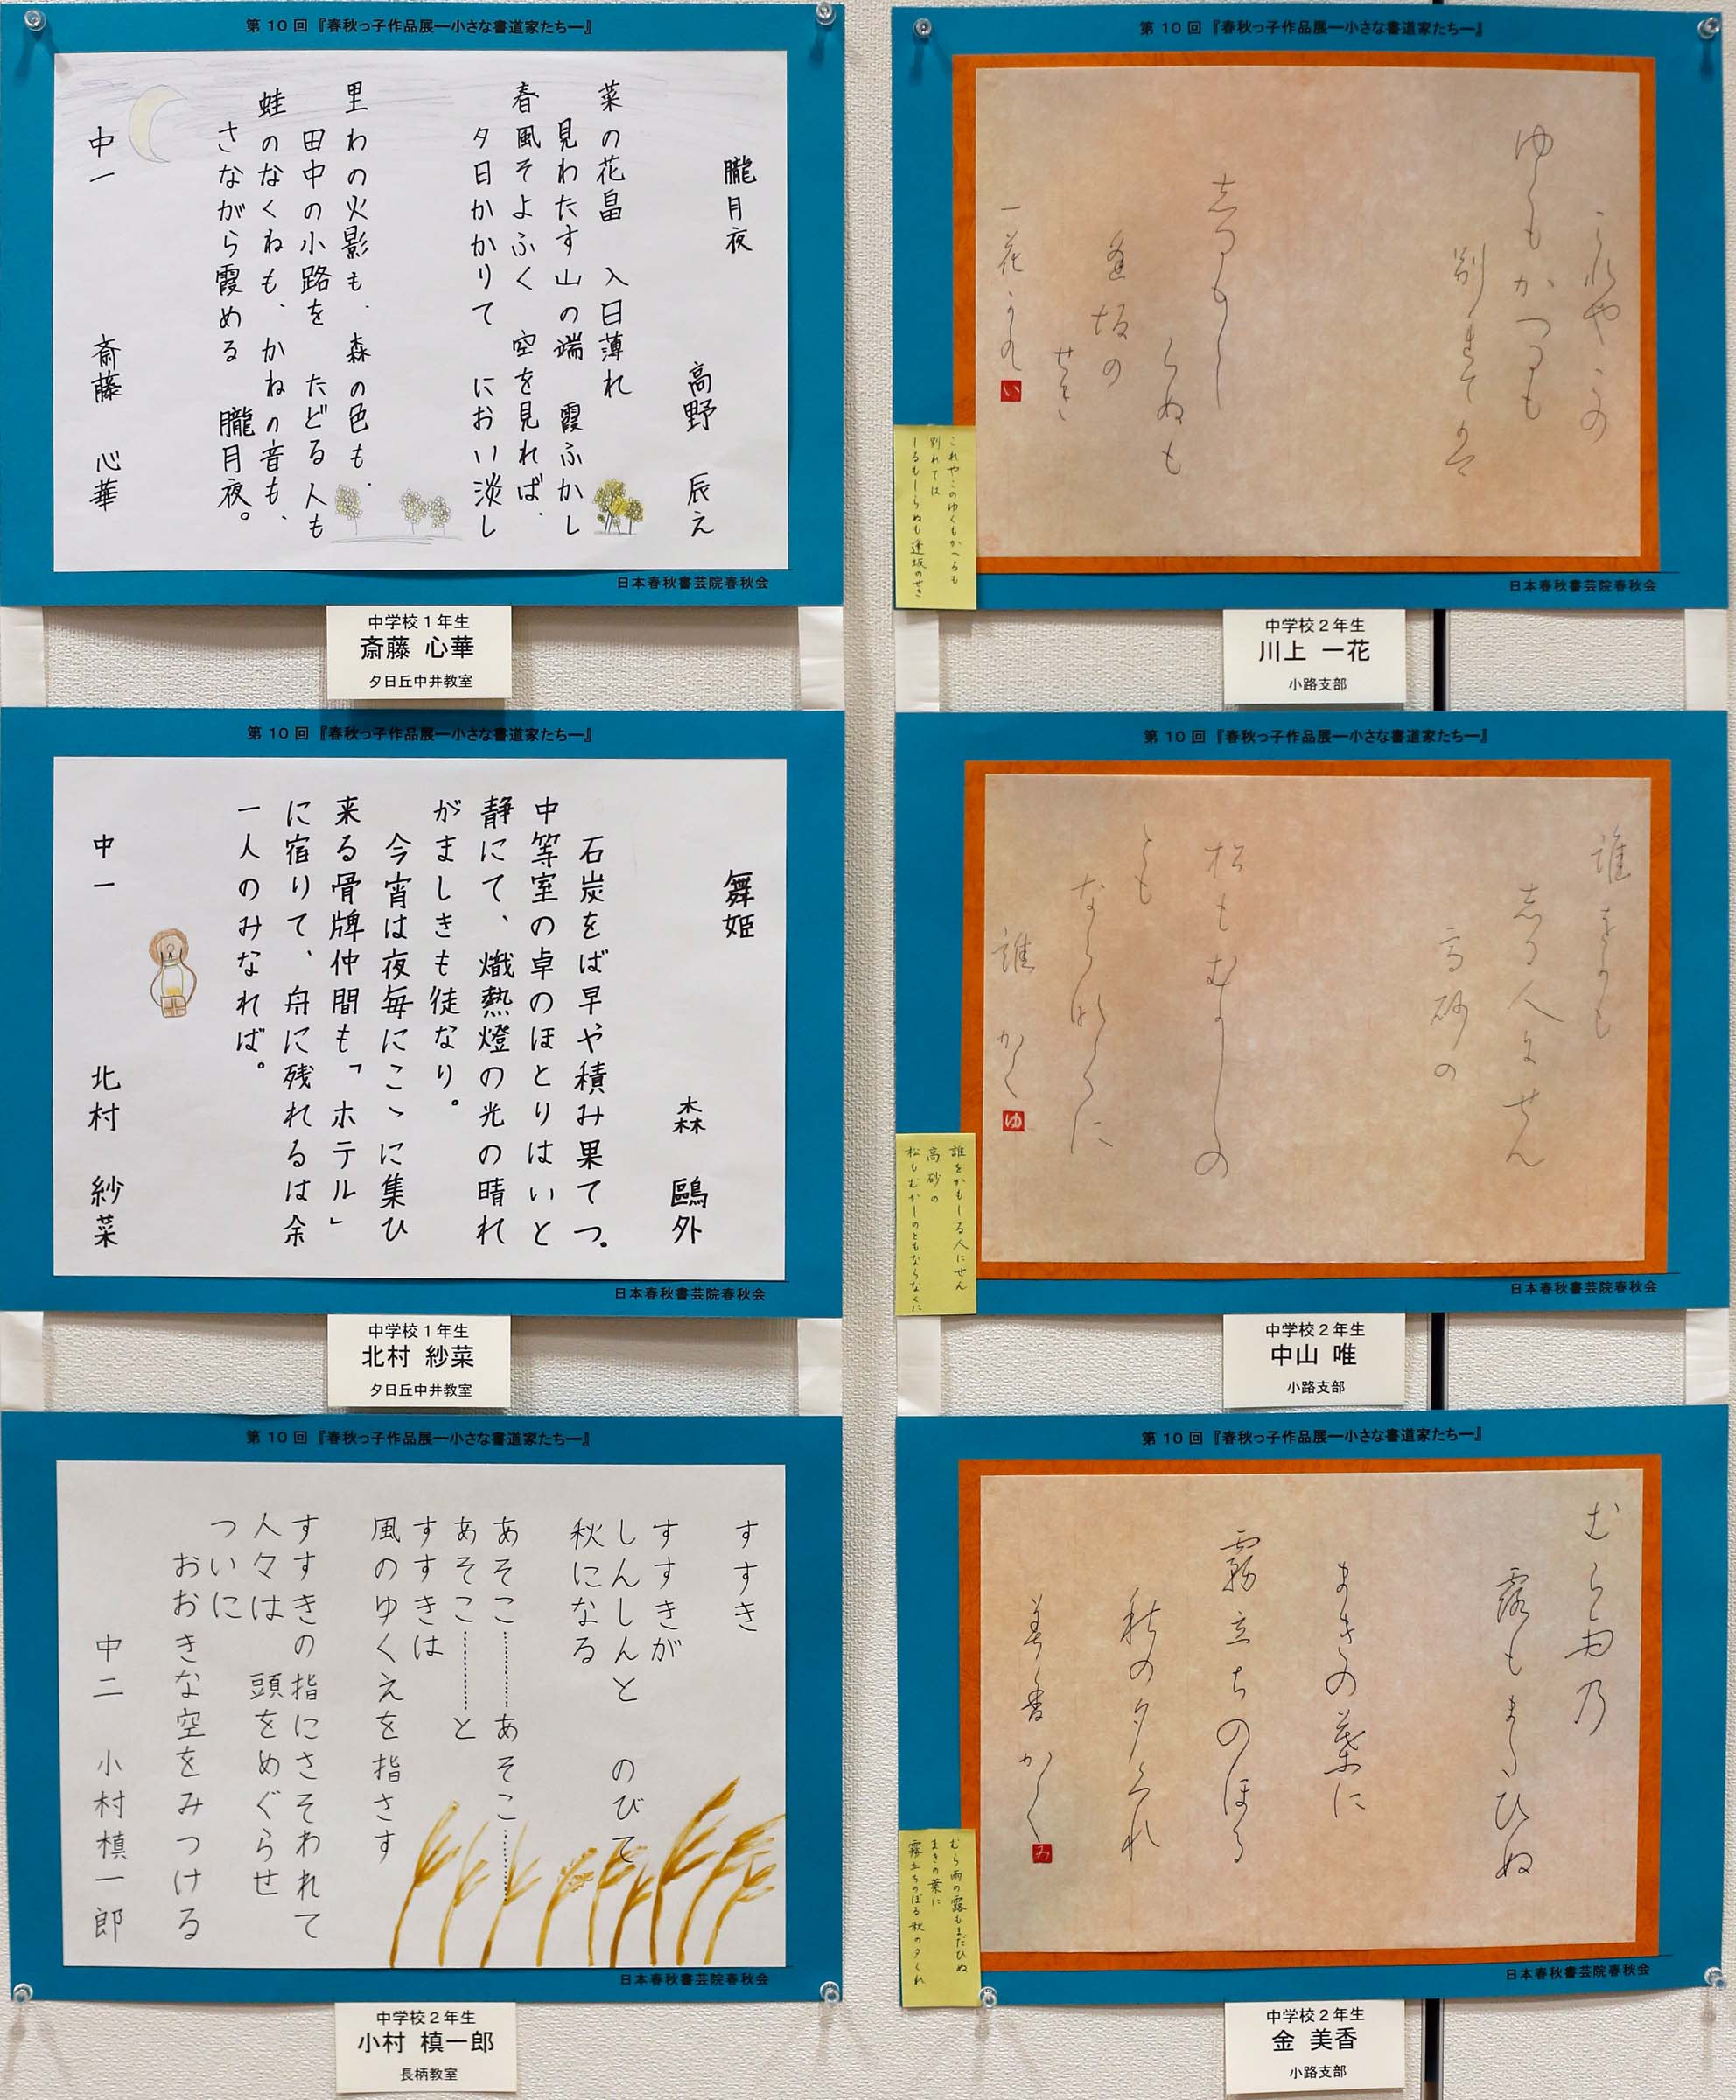 第10回『春秋っ子作品展―小さな書道家たち―』
朧月夜
高野 辰え
菜の花畠 入日薄れ
見わたす山の端 霞ふかし
春風そよふく 空を見れば、
夕日かかりて におい淡し
里わの火影も、森の色も、
田中の小路を たどる人も
蛙のなくねも、かねの音も、
さながら霞める 朧月夜。
中一 斎藤 心華
日本春秋書芸院春秋会
中学校1年生
斎藤 心華
夕日丘中井教室
第10回『春秋っ子作品展―小さな書道家たち―』
舞姫
森 鷗外
石炭をば早や積み果てつ。
中等室の卓のほとりはいと
静にて、熾熱燈の光の晴れ
がましきも徒なり。
今宵は夜毎にこゝに集ひ
来る骨牌仲間も「ホテル」
に宿りて、舟に残れるは余
一人のみなれば。
中一 北村 紗菜
日本春秋書芸院春秋会
中学校1年生
北村 紗菜
夕日丘中井教室
第10回『春秋っ子作品展―小さな書道家たち―』
すすき
すすきが
しんしんと のびて
秋になる
あそこ………あそこ………
あそこ………と
すすきは
風のゆくえを指さす
すすきの指にさそわれて
人々は 頭をめぐらせ
ついに
おおきな空をみつける
中二 小村槙一郎
日本春秋書芸院春秋会
中学校2年生
小村 槙一郎
長柄教室
第10回『春秋っ子作品展―小さな書道家たち―』
これやこの
ゆくもかへるも
別れては
志るもし
らぬも
逢坂の
せき
一花かく
い
これやこのゆくもかへるも
別れては
しるもしらぬも逢坂のせき
日本春秋書芸院春秋会
中学校2年生
川上 一花
小路支部
第10回『春秋っ子作品展―小さな書道家たち―』
誰をかも
志る人にせん
高砂の
松もむかしの
とも
ならなくに
唯 かく
ゆ
誰をかもしる人にせん
高砂の
松もむかしのともならなくに
日本春秋書芸院春秋会
中学校2年生
中山 唯
小路支部
第10回『春秋っ子作品展―小さな書道家たち―』
むら雨乃
露もまたひぬ
まきの葉に
霧立ちのほる
秋の夕くれ
美香かく
み
むら雨の露もまだひぬ
まきの葉に
霧立ちのぼる秋の夕くれ
日本春秋書芸院春秋会
中学校2年生
金 美香
小路支部